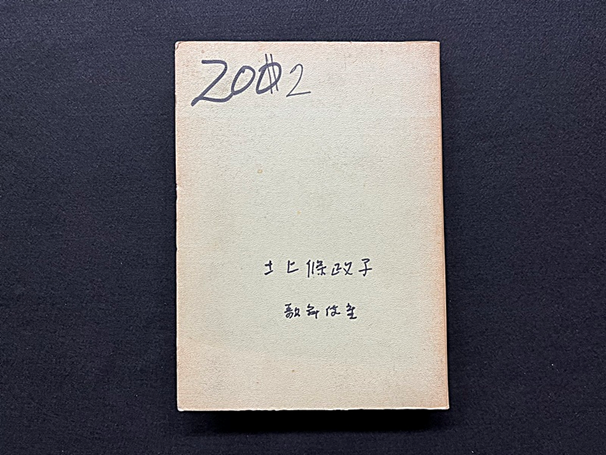 2002
北條政子
歌舞伎座